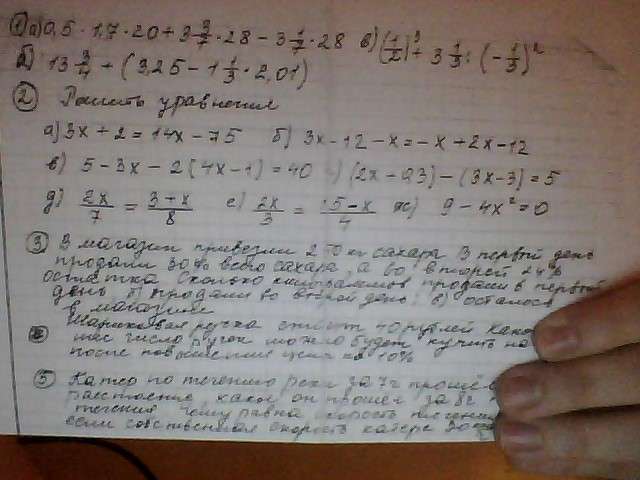 ① а) 0,5 · 1,7 · 20 + 3 3/7 · 28 - 3 1/7 · 28 в) (1/2)³ + 3 1/3 : (-1/3)²
б) 13 3/4 + (3,25 - 1 1/3 · 2,01)
② Решить уравнения
а) 3x + 2 = 14x - 75 б) 3x - 12 - x = -x + 2x - 12
в) 5 - 3x - 2(4x - 1) = 40 (2x - 0,3) - (3x - 3) = 5
д) 2x/7 = 3+x/8 е) 2x/3 = 5-x/4 ж) 9 - 4x² = 0
③ В магазин привезли 250 кг сахара В первый день
продали 30% всего сахара, а во второй 24%
остатка Сколько килограммов продали в первый
день б) продали во второй день в) осталось
в магазине
Шариковая ручка стоит 40 рублей Какое
число ручек можно будет купить на
после повышения цены на 10%
5 Катер по течению реки за 7ч прошёл
расстояние, какое он прошел за 8ч
течения Чему равна скорость течения
если собственная скорость катера